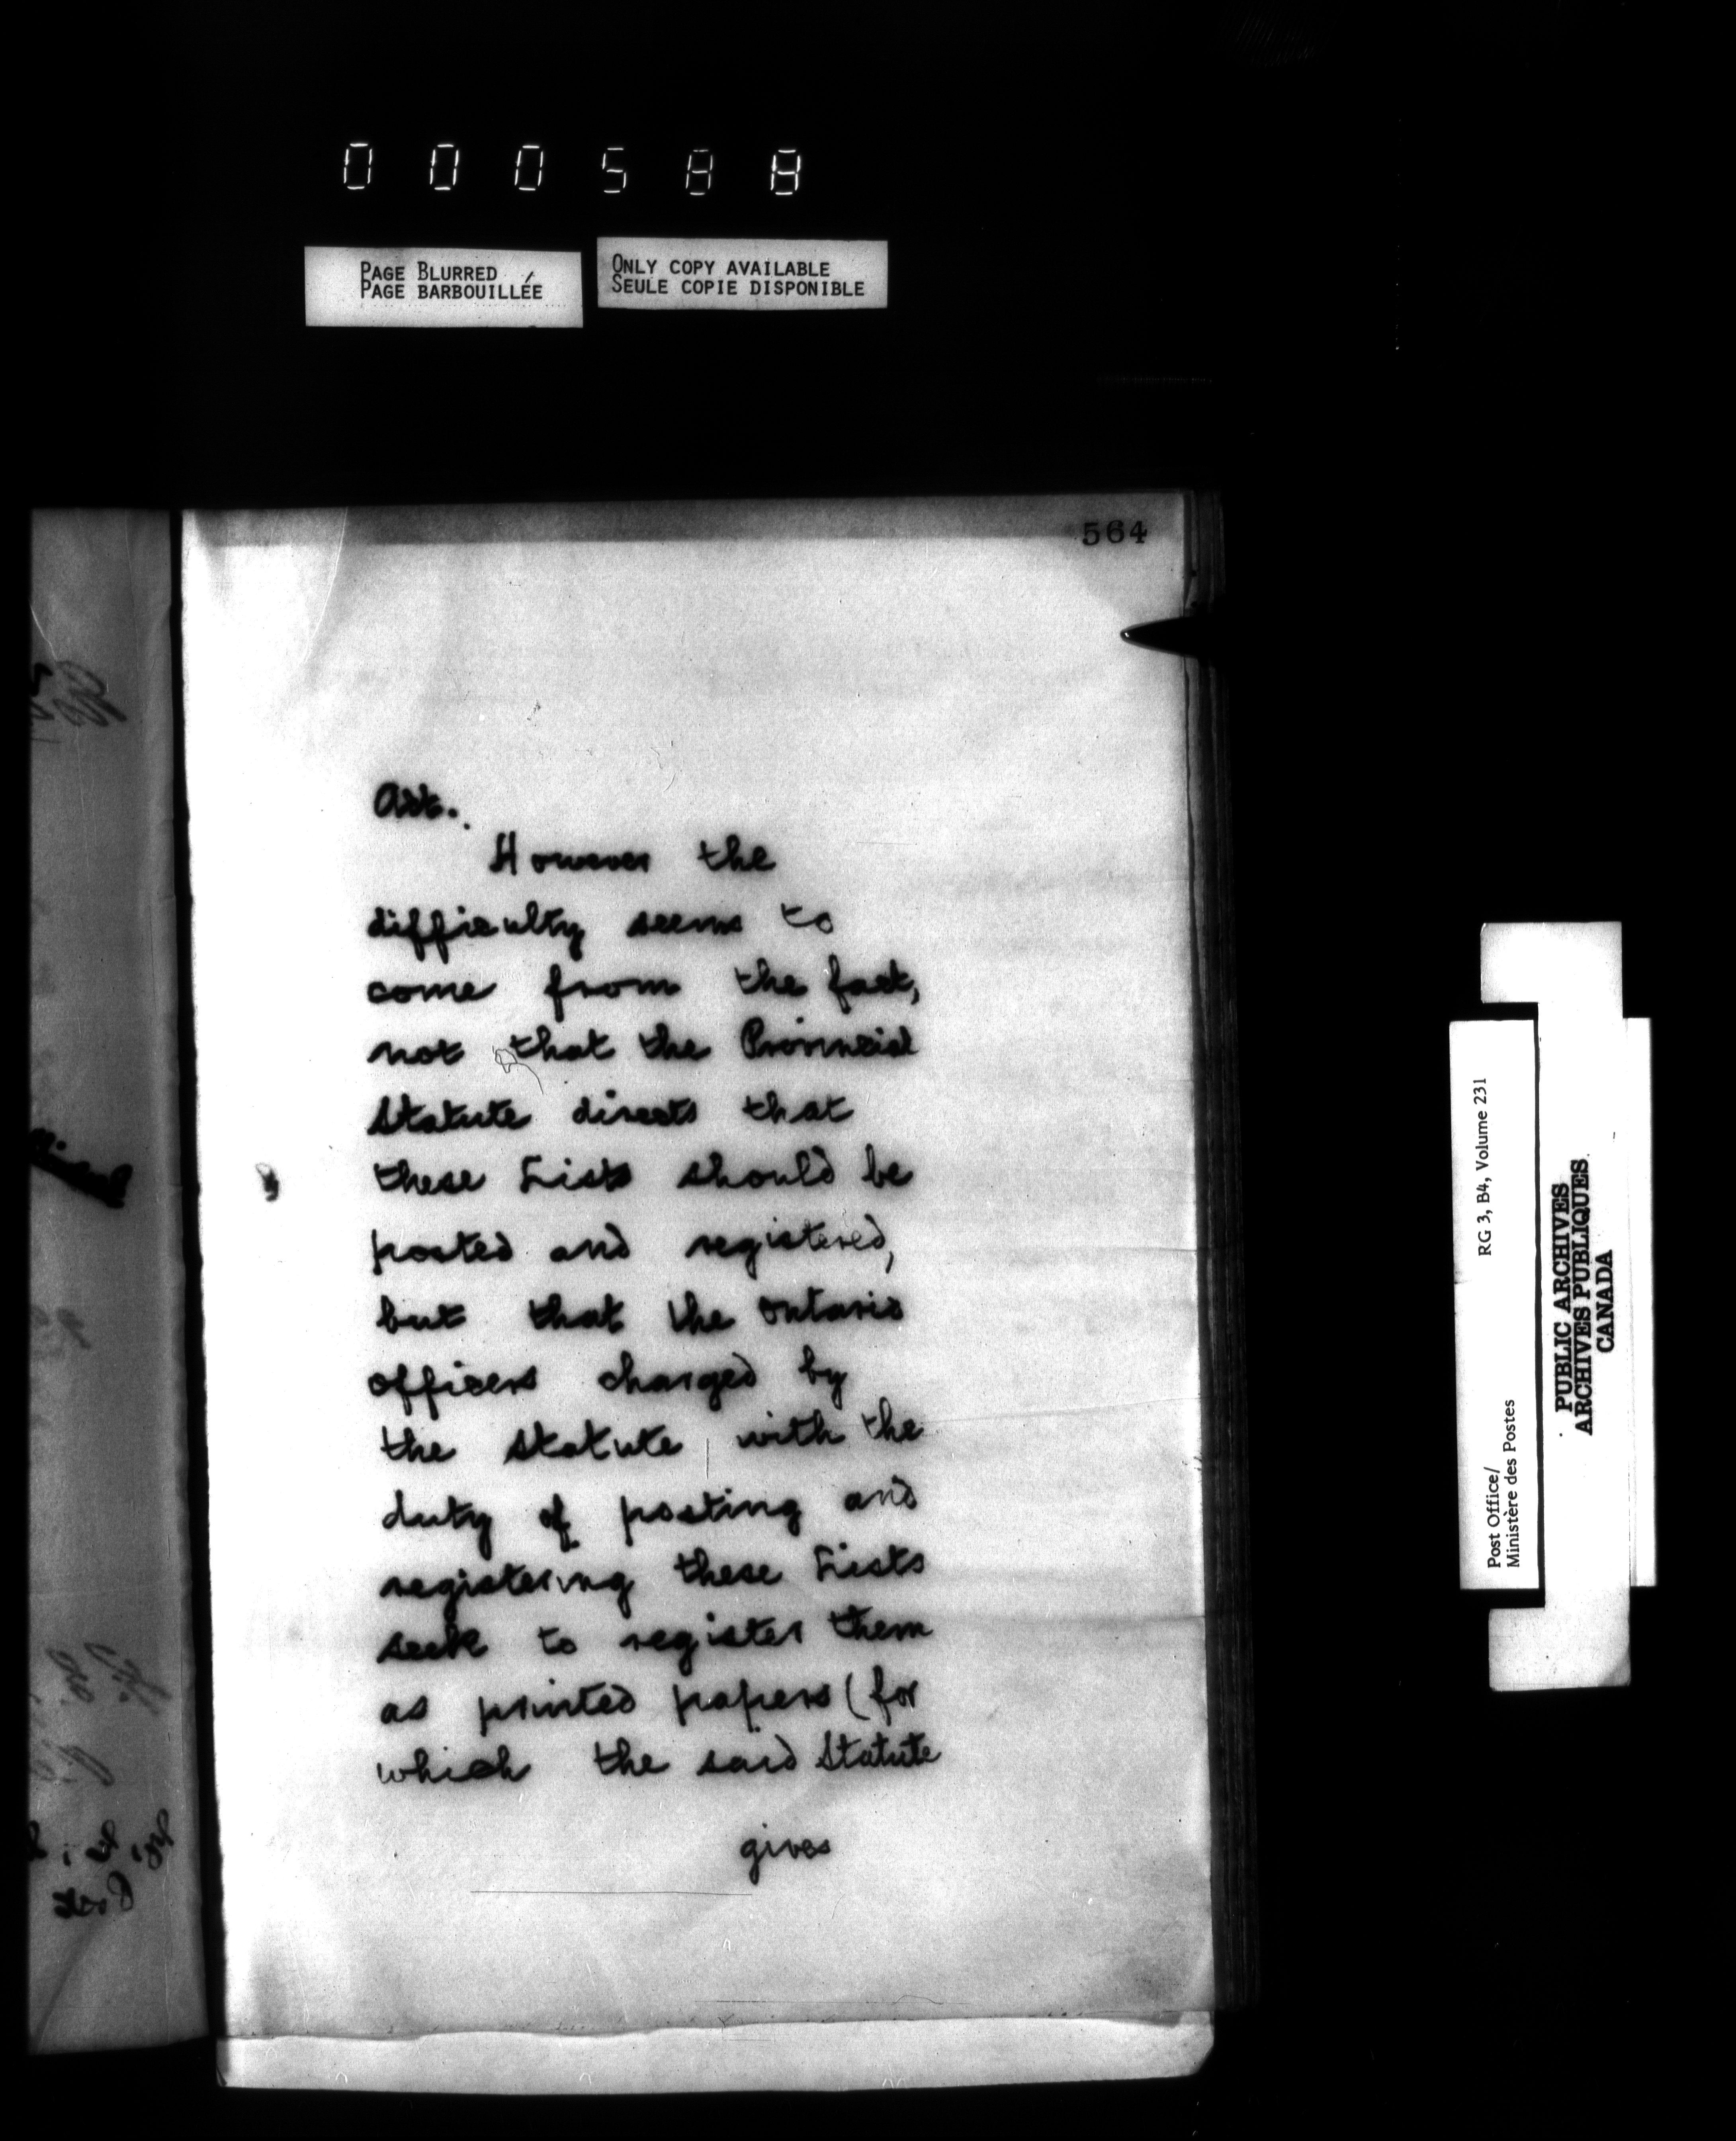 000588
PAGE BLURRED
PAGE BARBOUILLÉE
ONLY COPY AVAILABLE
SEULE COPIE DISPONIBLE
564
Act.
However the
difficulty seems to
come from the fact,
not that the Provincial
Statute directs that
these Lists should be
posted and registered,
but that the Ontario
officers charged by
the Statute with the
duty of posting and
registering these Lists
seek to register them
as printed papers (for
which the said Statute
gives
Post Office/
Ministère des Postes
RG 3, B4, Volume 231
PUBLIC ARCHIVES
ARCHIVES PUBLIQUES
CANADA